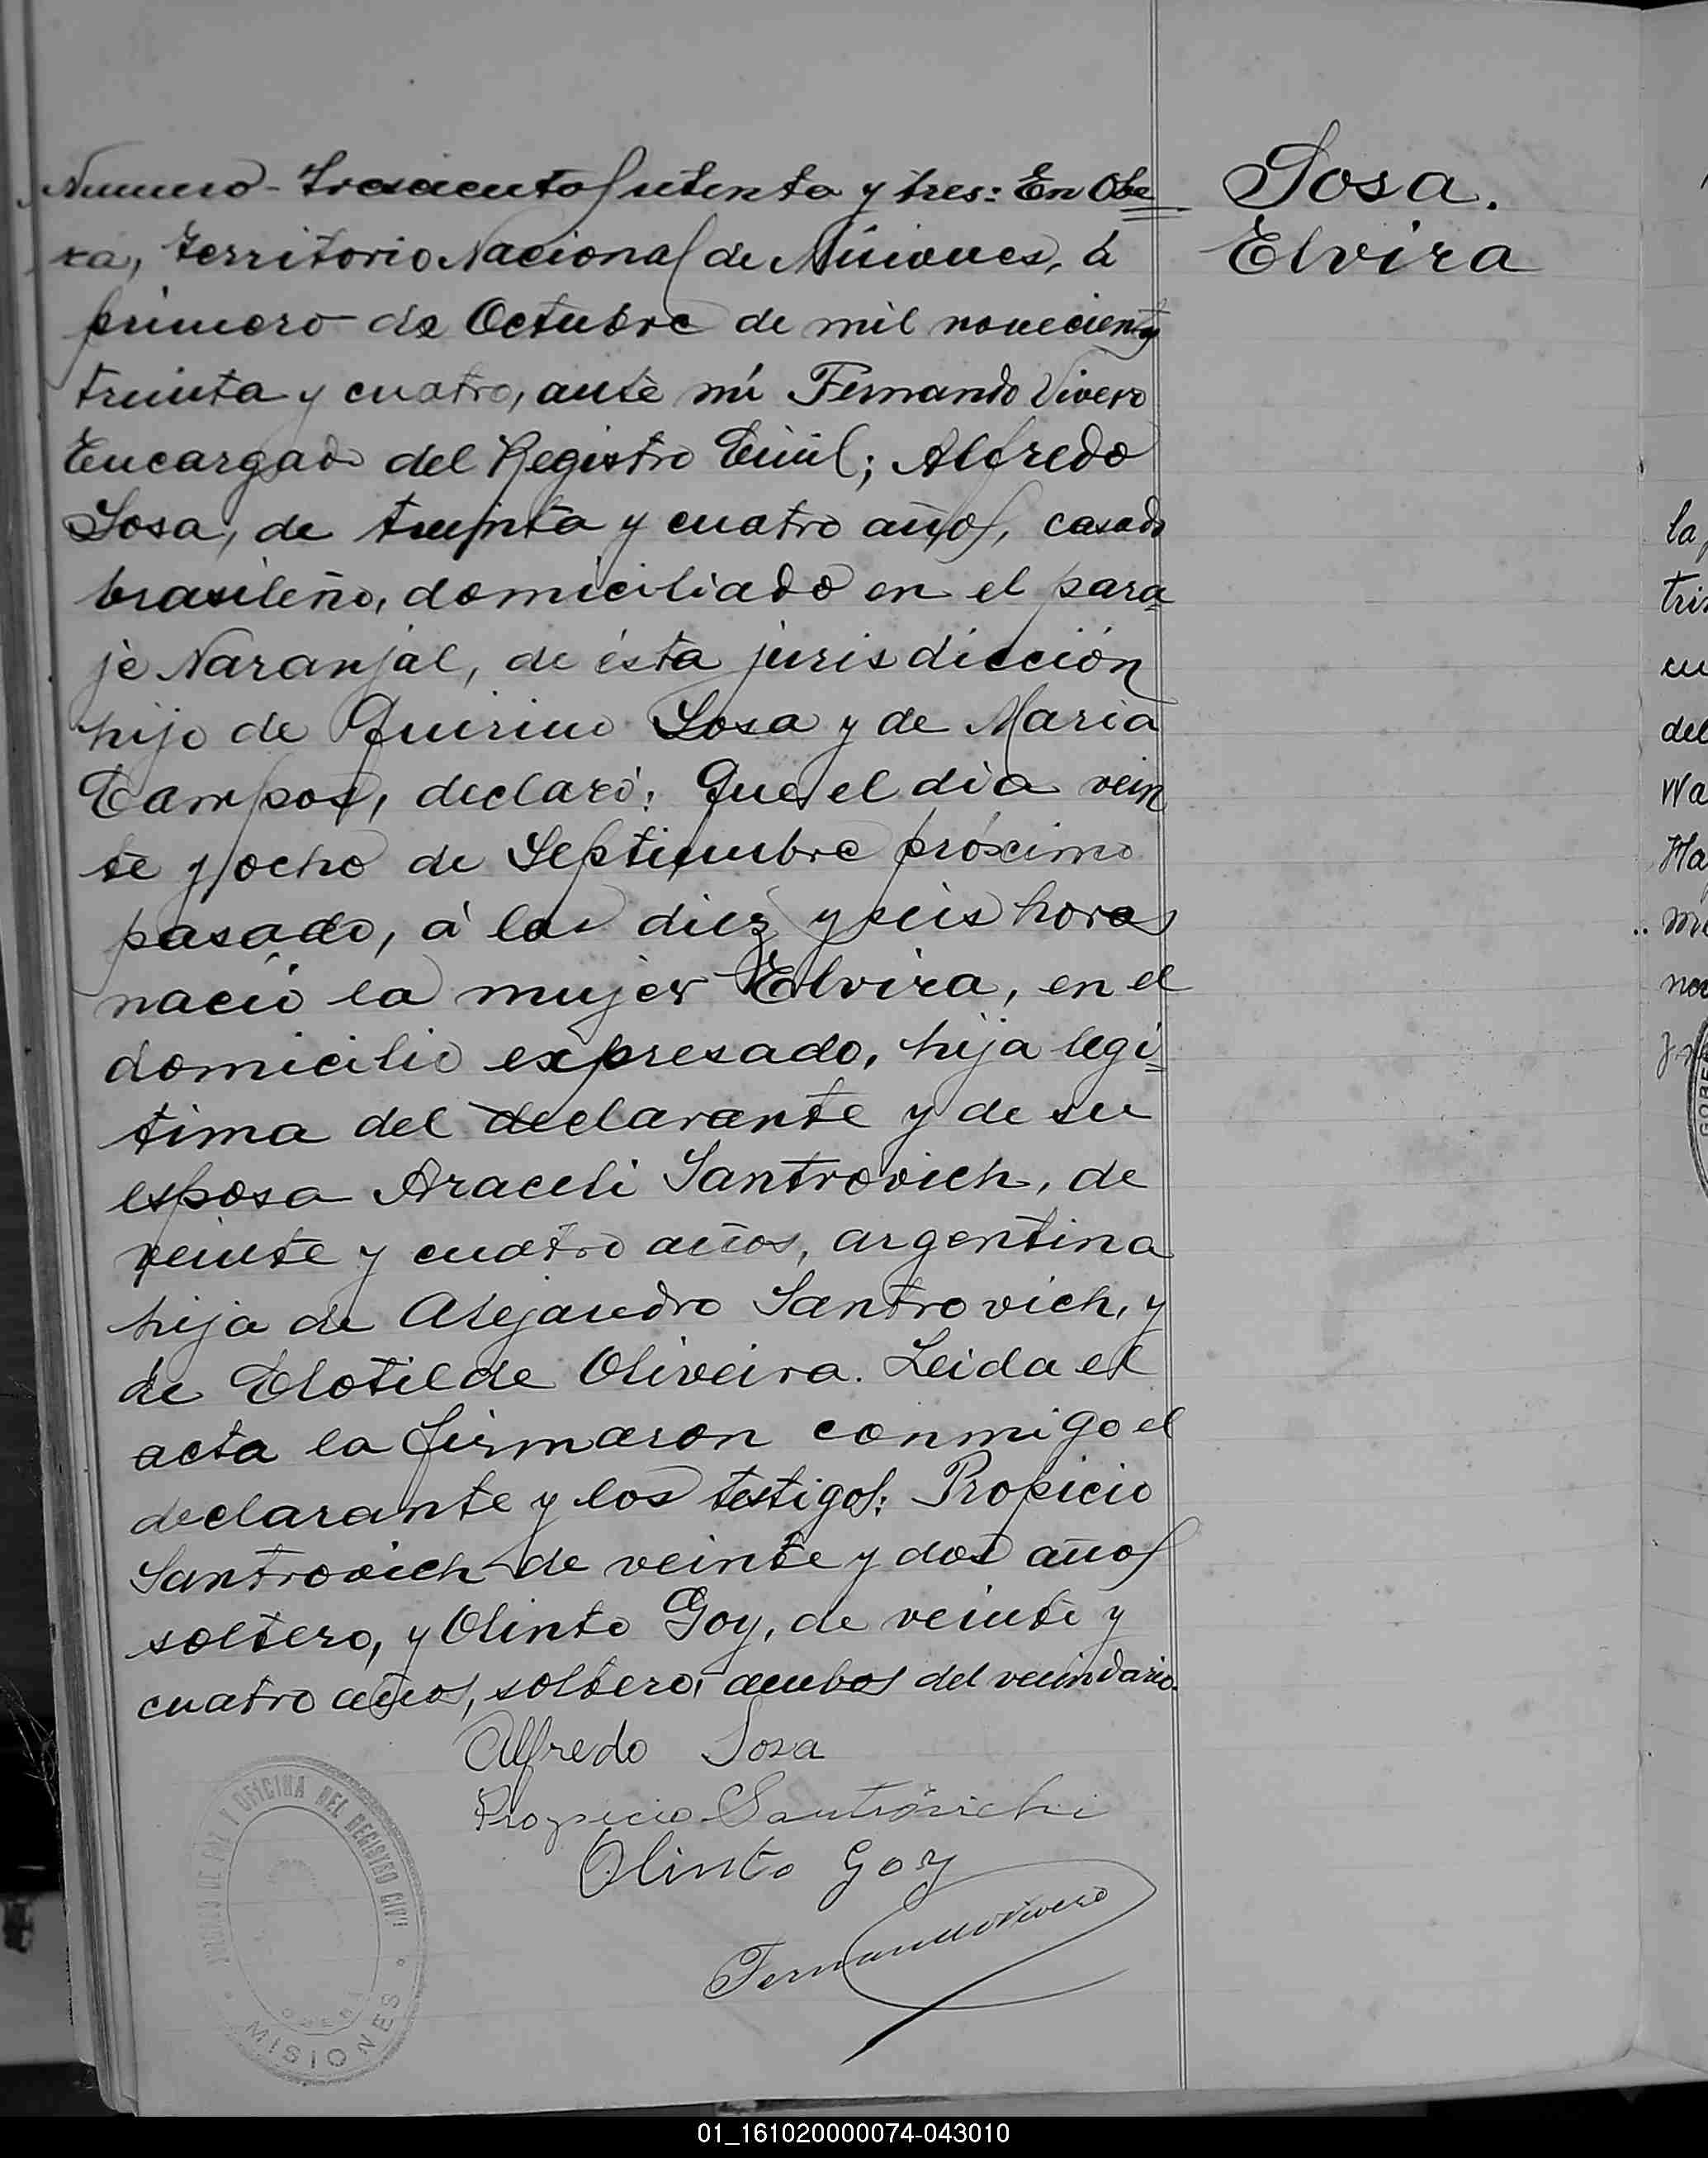 Sosa.
Elvira
Numero - Trescientos setenta y tres: En Obe
rá, Territorio Nacional de Misiones, á
primero de Octubre de mil novecientos
treinta y cuatro, ante mí Fernando Vivero
Encargado del Registro Civil; Alfredo
Sosa, de treinta y cuatro años, casado
brasileño, domiciliado en el para
je Naranjal, de ésta jurisdicción
hijo de Quirino Sosa y de María
Campos, declaró: Que el día vein
te y ocho de Septiembre próximo
pasado, á las diez y seis horas
nació la mujer Elvira, en el
domicilio expresado, hija legi
tima del declarante y de su
esposa Araceli Santrovich, de
veinte y cuatro años, argentina
hija de Alejandro Santrovich, y
de Clotilde Oliveira. Leida el
acta la firmaron conmigo el
declarante y los testigos: Propicio
Santrovich de veinte y dos años
soltero, y Olinto Goy, de veinte y
cuatro años, soltero, ambos del vecindario.
Alfredo Sosa
Propicio Santrovichi
Olinto Goy
Fernando Vivero
OFICINA DEL REGISTRO CIVIL
MISIONES
01_161020000074-043010